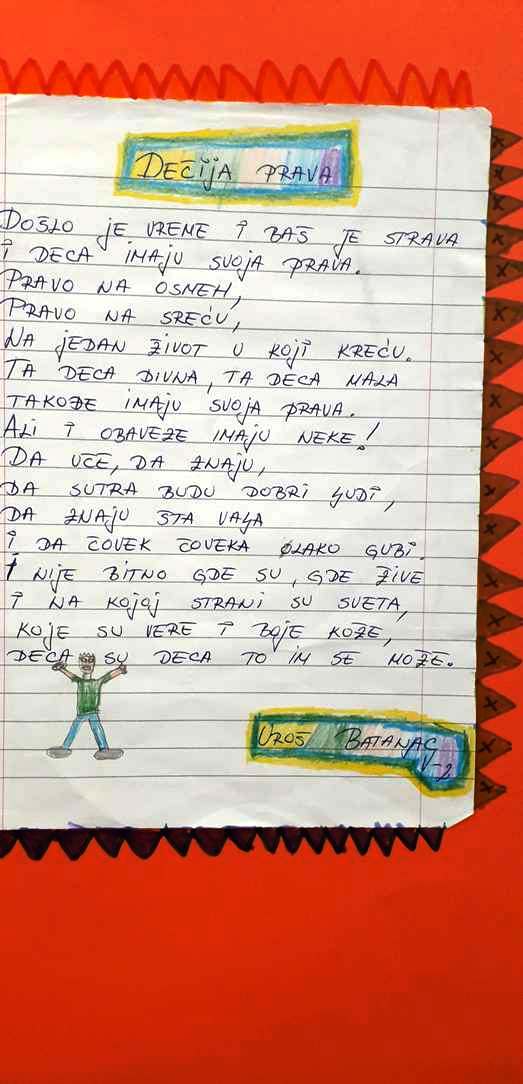 DEČIJA PRAVA
DOŠLO JE VREME I BAŠ JE STRAVA
I DECA IMAJU SVOJA PRAVA.
PRAVO NA OSMEH,
PRAVO NA SREĆU,
NA JEDAN ŽIVOT U KOJI KREĆU.
TA DECA DIVNA, TA DECA MALA
TAKOĐE IMAJU SVOJA PRAVA.
ALI I OBAVEZE IMAJU NEKE!
DA UČE, DA ZNAJU,
DA SUTRA BUDU DOBRI LJUDI,
DA ZNAJU ŠTA VALJA
I DA ČOVEK ČOVEKA OLAKO GUBI.
I NIJE BITNO GDE SU, GDE ŽIVE
I NA KOJOJ STRANI SU SVETA,
KOJE SU VERE I BOJE KOŽE,
DECA SU DECA TO IM SE MOŽE.
UROŠ BATANJAC
V-2